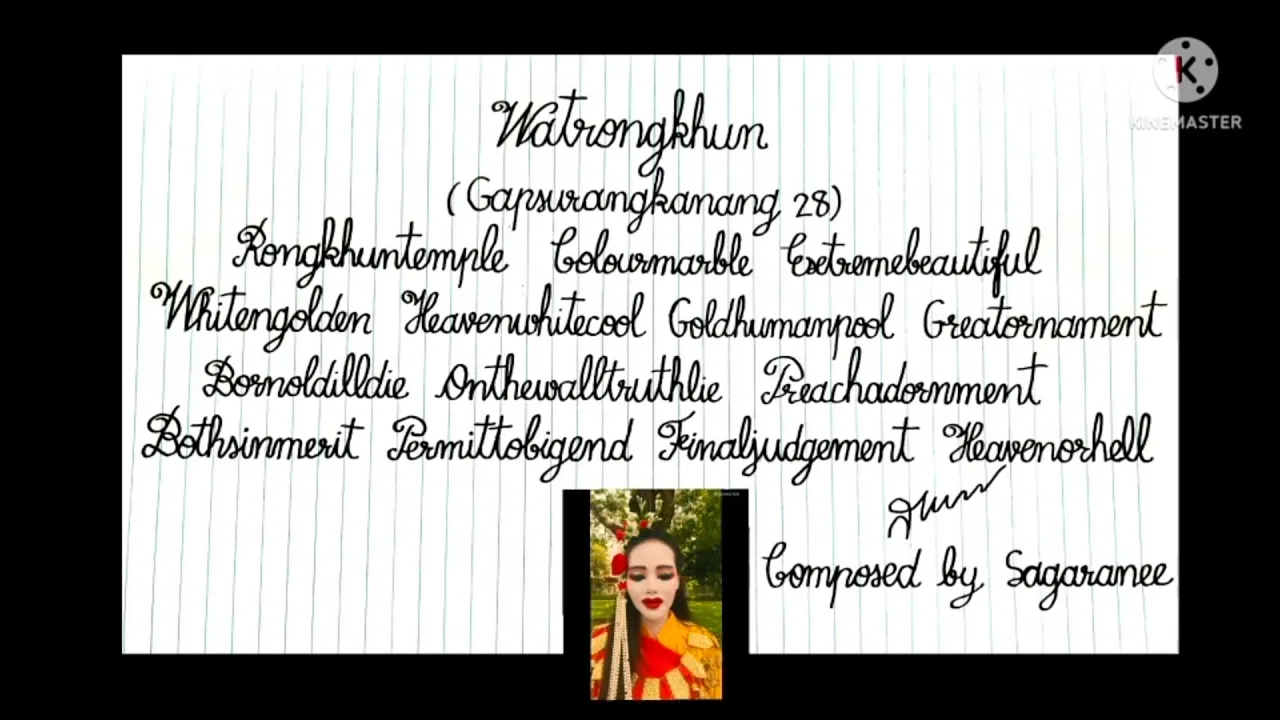 KINEMASTER
Watrongkhun
(Gapsurangkanang 28)
Rongkhuntemple Colourmarble Extremebeautiful
Whitengolden Heavenwhitecool Goldhumanpool Greatornament
Bornoldilldie Onthewalltruthlie Preachadornment
Bothsinmerit Permittobigend Finaljudgement Heavenorhell
Composed by Sagaranee